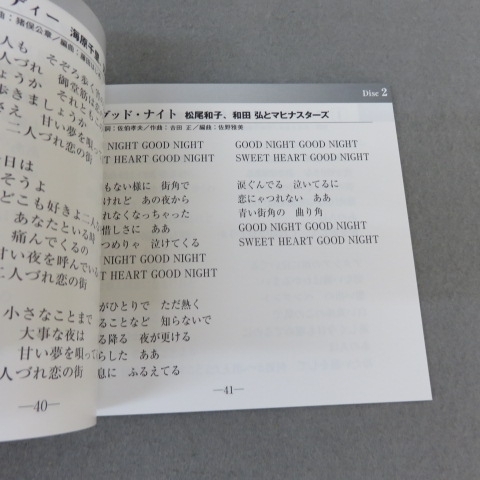 ディー 海原千里
曲：猪俣公章／編曲：
人も そぞろ歩く
人づれ 御堂筋は
ょうか それとも
歩きましょうか
さえ 甘い夜を
二人づれ恋の街
日は
そうよ
どこも好きよ二人
あなたといる時
痛んでくるの
甘い夜を呼んでいる
二人づれ恋の街
小さなことまで
大事な夜は
甘い夢を唄って
人づれ恋の街
—40—
Disc 2
グッド・ナイト 松尾和子、和田 弘とマヒナスターズ
詞：佐伯孝夫／作曲：吉田 正／編曲：佐野雅美
NIGHT GOOD NIGHT
HEART GOOD NIGHT
もない様に 街角で
けれど あの夜から
れなくなっちゃった
惜しさに ああ
つめりゃ 泣けてくる
NIGHT GOOD NIGHT
HEART GOOD NIGHT
がひとりで ただ熱く
ることなど 知らないで
る降る 夜が更ける
らした ああ
息に ふるえてる
GOOD NIGHT GOOD NIGHT
SWEET HEART GOOD NIGHT
涙ぐんでる 泣いてるに
恋にゃつれない ああ
青い街角の 曲り角
GOOD NIGHT GOOD NIGHT
SWEET HEART GOOD NIGHT
—41—